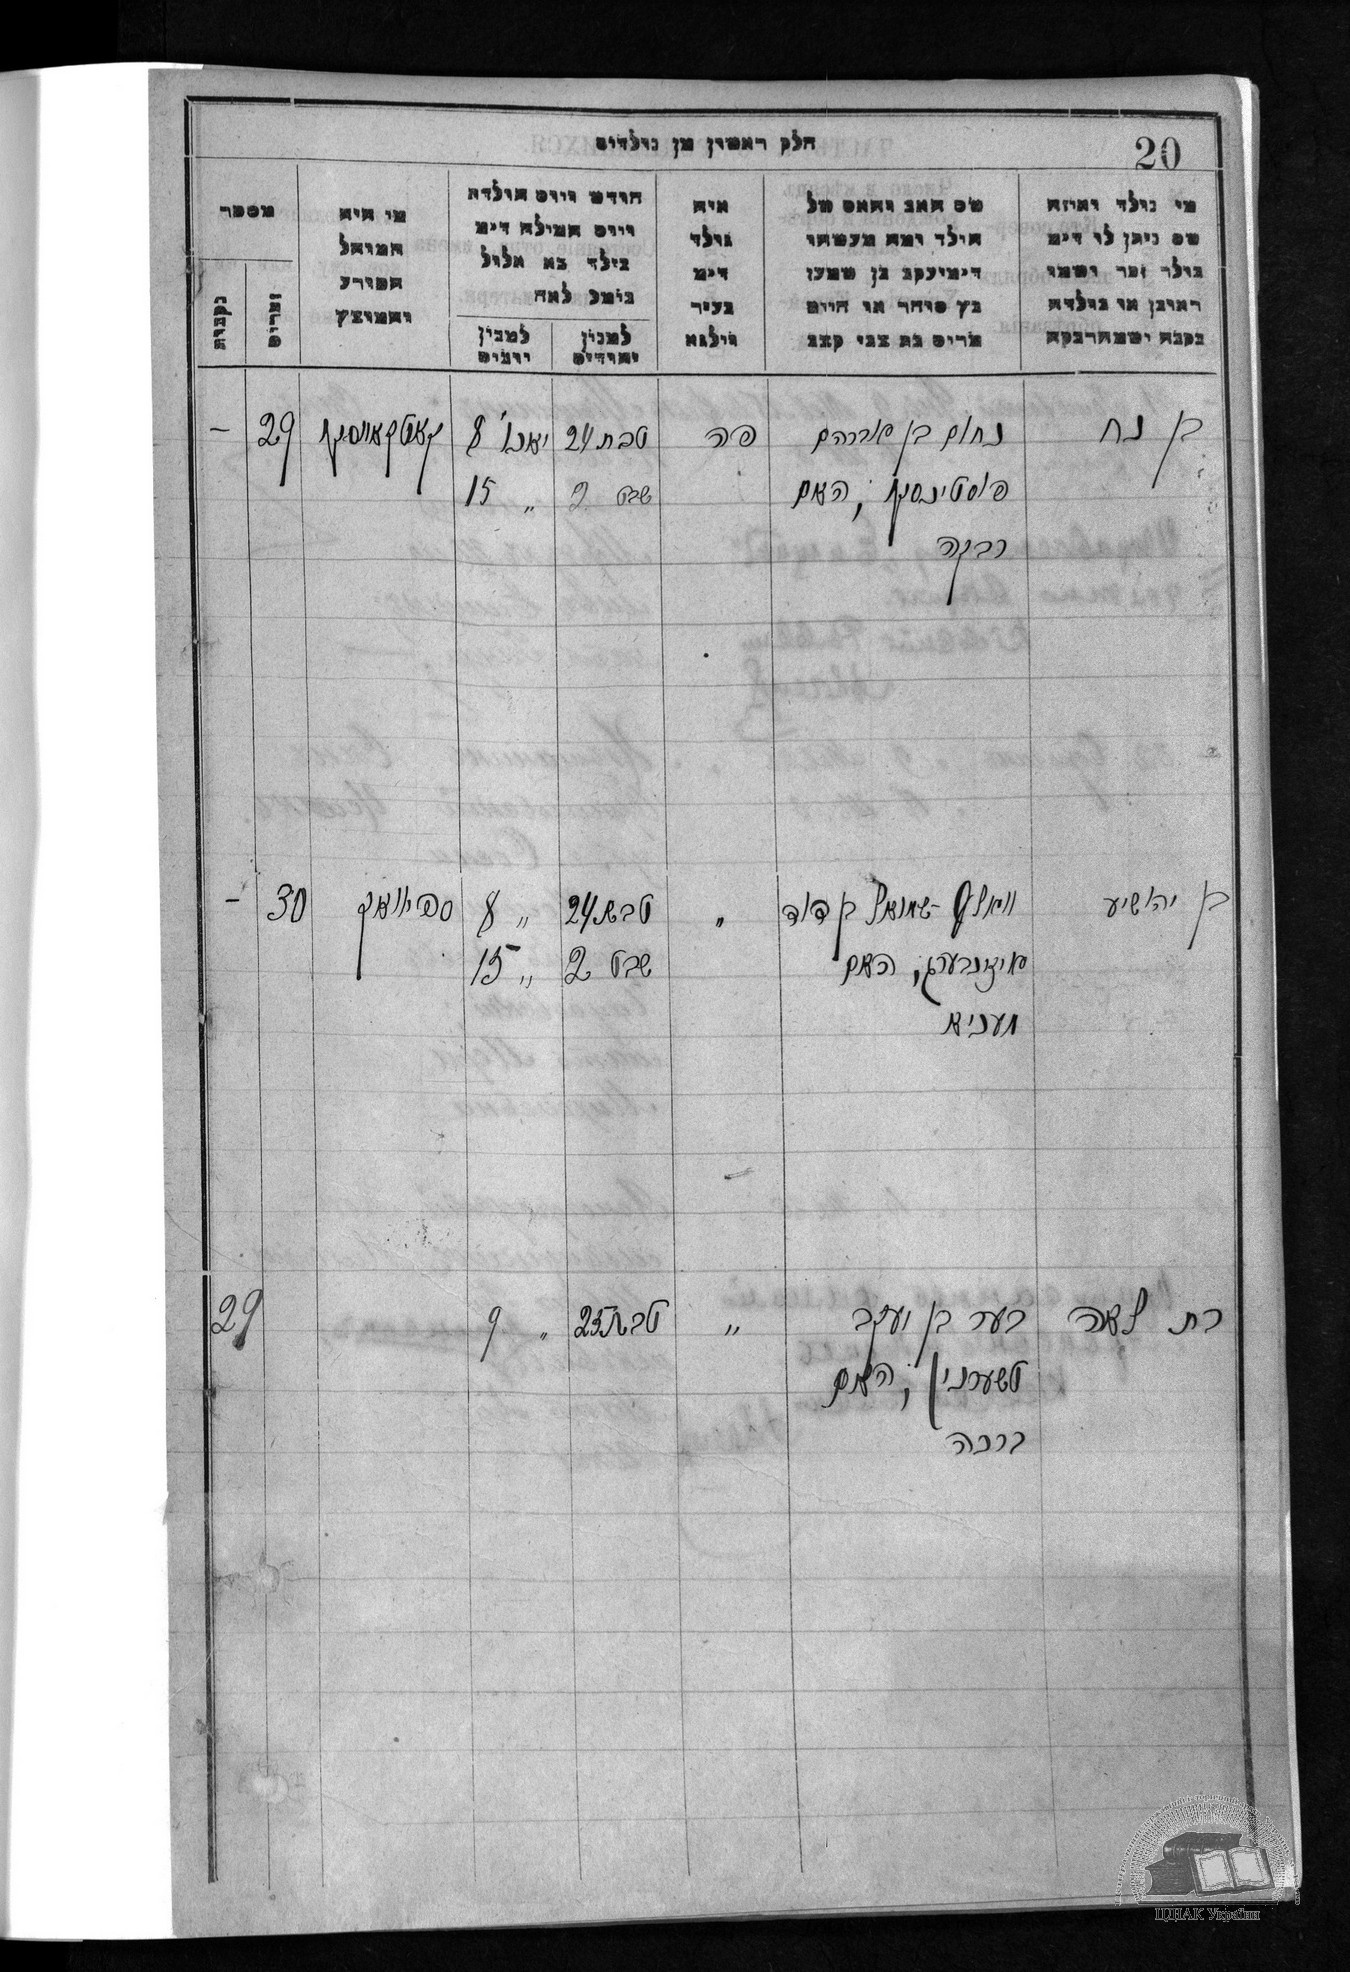 20
חלק ראשון מן נולדים
מי נולד ואיזה
שם ניתן לו דימ
נולד זכר ושמו
ראובן או נולדה
נקבה ושמה רבקה
שם האב והאם של
הילד ומה מעשהו
דימ יעקב בן שמעון
כץ סוחר או חיים
מרים בת צבי קצב
איה
נולד
דימ
בעיר
ווילנא
חודש ויום הולדה
ויום המילה דימ
נולד בא אלול
נימל לאה
למנין
יהודים
למנין
יונים
מי היה
המוהל
הפורע
והמוצץ
מספר
זכרים
נקבות
בן נח
נחום בן אברהם
פוסטינסקי, האם
רבקה
פה
טבת 24
שבט 2
יאנו' 8
" 15
קאטקאווסקי
29
-
בן יהושיע
וואלף-שמואל בן דוד
אייזינבערג, האם
מעניא
"
טבת 24
שבט 2
" 8
" 15
ספיוואק
30
-
בת לאה
בער בן יעקב
טשערנין, האם
ברכה
"
טבת 25
" 9
29
ЦДІАК України